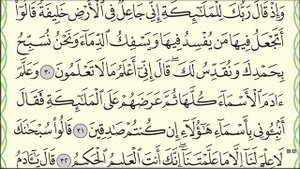 وَإِذْ قَالَ رَبُّكَ لِلْمَلَٰٓئِكَةِ إِنِّي جَاعِلٌ فِي ٱلْأَرْضِ خَلِيفَةً قَالُوٓا۟
أَتَجْعَلُ فِيهَا مَن يُفْسِدُ فِيهَا وَيَسْفِكُ ٱلدِّمَآءَ وَنَحْنُ نُسَبِّحُ
بِحَمْدِكَ وَنُقَدِّسُ لَكَ قَالَ إِنِّيٓ أَعْلَمُ مَا لَا تَعْلَمُونَ ٣٠ وَعَلَّمَ
ءَادَمَ ٱلْأَسْمَآءَ كُلَّهَا ثُمَّ عَرَضَهُمْ عَلَى ٱلْمَلَٰٓئِكَةِ فَقَالَ
أَنۢبِـُٔونِي بِأَسْمَآءِ هَٰٓؤُلَآءِ إِن كُنتُمْ صَٰدِقِينَ ٣١ قَالُوا۟ سُبْحَٰنَكَ
لَا عِلْمَ لَنَآ إِلَّا مَا عَلَّمْتَنَآ إِنَّكَ أَنتَ ٱلْعَلِيمُ ٱلْحَكِيمُ ٣٢ قَالَ يَٰٓـَٔادَمُ